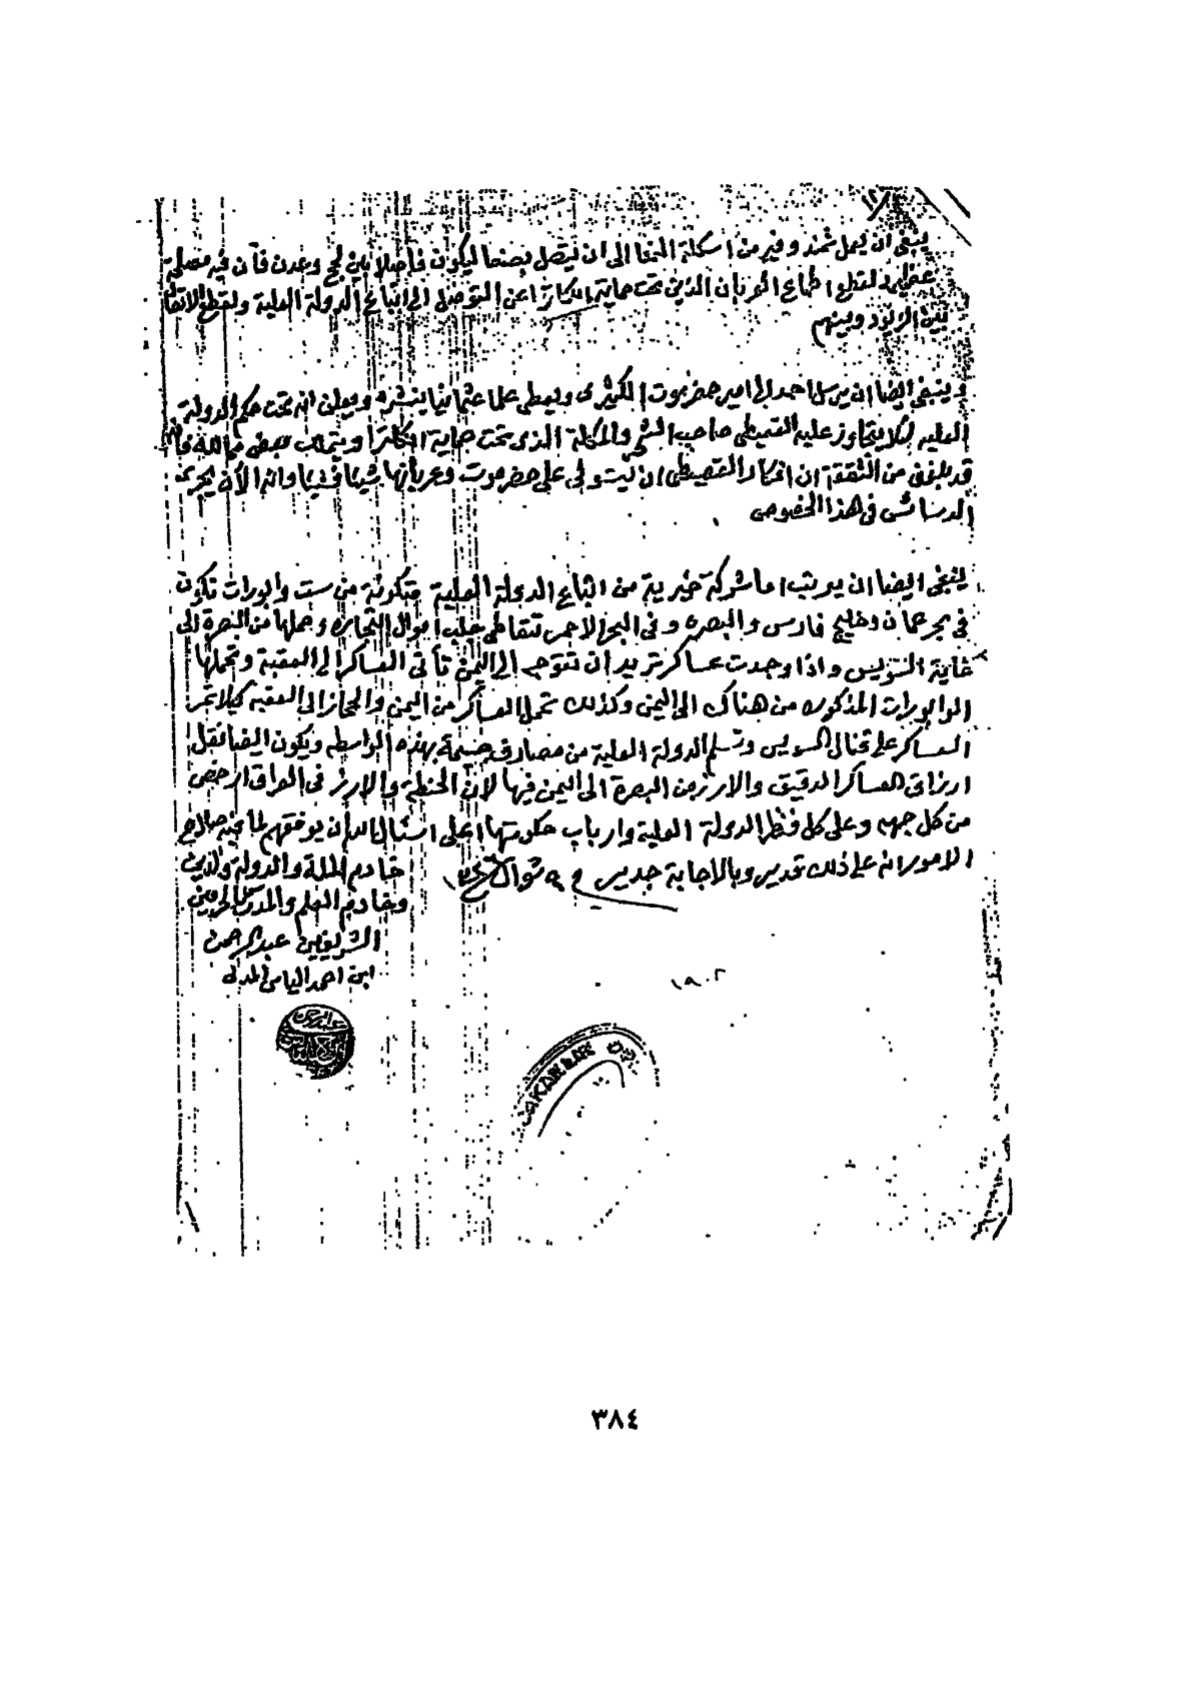 ينبغي ان يعمل شمند وفير من اسكلة المخا الى ان يتصل بصنعا ليكون فاصلا بين لحج وعدن فأن فيه مصلحة
عظيمه لقطع اطماع العربان الذين تحت حماية انكلترا عن التوصل الى اتباع الدولة العلية ولقطع الاتفاق
بين الزيود وبينهم
وينبغي ايضا ان يرسل احد الى امير حضرموت الكثيرى ويعطى علما عثمانيا ينشره ويعلن انه تحت حكم الدولة
العليه لئلا يتجاوز عليه القعيطى صاحب الشحر والمكلة الذى تحت حماية انكلترا ويتملك بعض ممالكه فانه
قد بلغنى من الثقة ان افكار القعيطى ان يستولى على حضرموت وعربانها شيئا فشيئا وانه الأن يجرى
الدسائس في هذا الخصوص
ينبغى ايضا ان يرتب اما شركة خيرية من اتباع الدولة العلية متكونة من ست وابورات تكون
في بحر عمان وخليج فارس والبصره وفى البحر الاحمر تتعاطى جلب اموال التجاره وحملها من البصرة الى
غاية السويس واذا وجدت عساكر تريد ان تتوجه الى اليمن تأتى العساكر الى العقبة وتحملها
الوابورات المذكوره من هناك الى اليمن وكذلك تحمل العساكر من اليمن والحجاز الى العقبه كيلا تمر
العساكر على قنال السويس وتسلم الدولة العلية من مصارف جسيمة بهذه الواسطه ويكون ايضا نقل
ارزاق العساكر الدقيق والارز من البصرة الى اليمن فيها لان الحنطة والارز فى العراق ارخص
من كل جهه وعلى كل فنظر الدولة العلية وارباب حكومتها اعلى اسئال الله ان يوفقهم لما فيه صلاح
الامور انه على ذلك قدير وبالاجابة جدير في ٩ شوال
خادم الملة والدولة والدين
وخادم العلم والمدرس الحرمين
الشريفين عبد الرحمن
ابن احمد الياس المدنى
١٨٠٢
٣٨٤